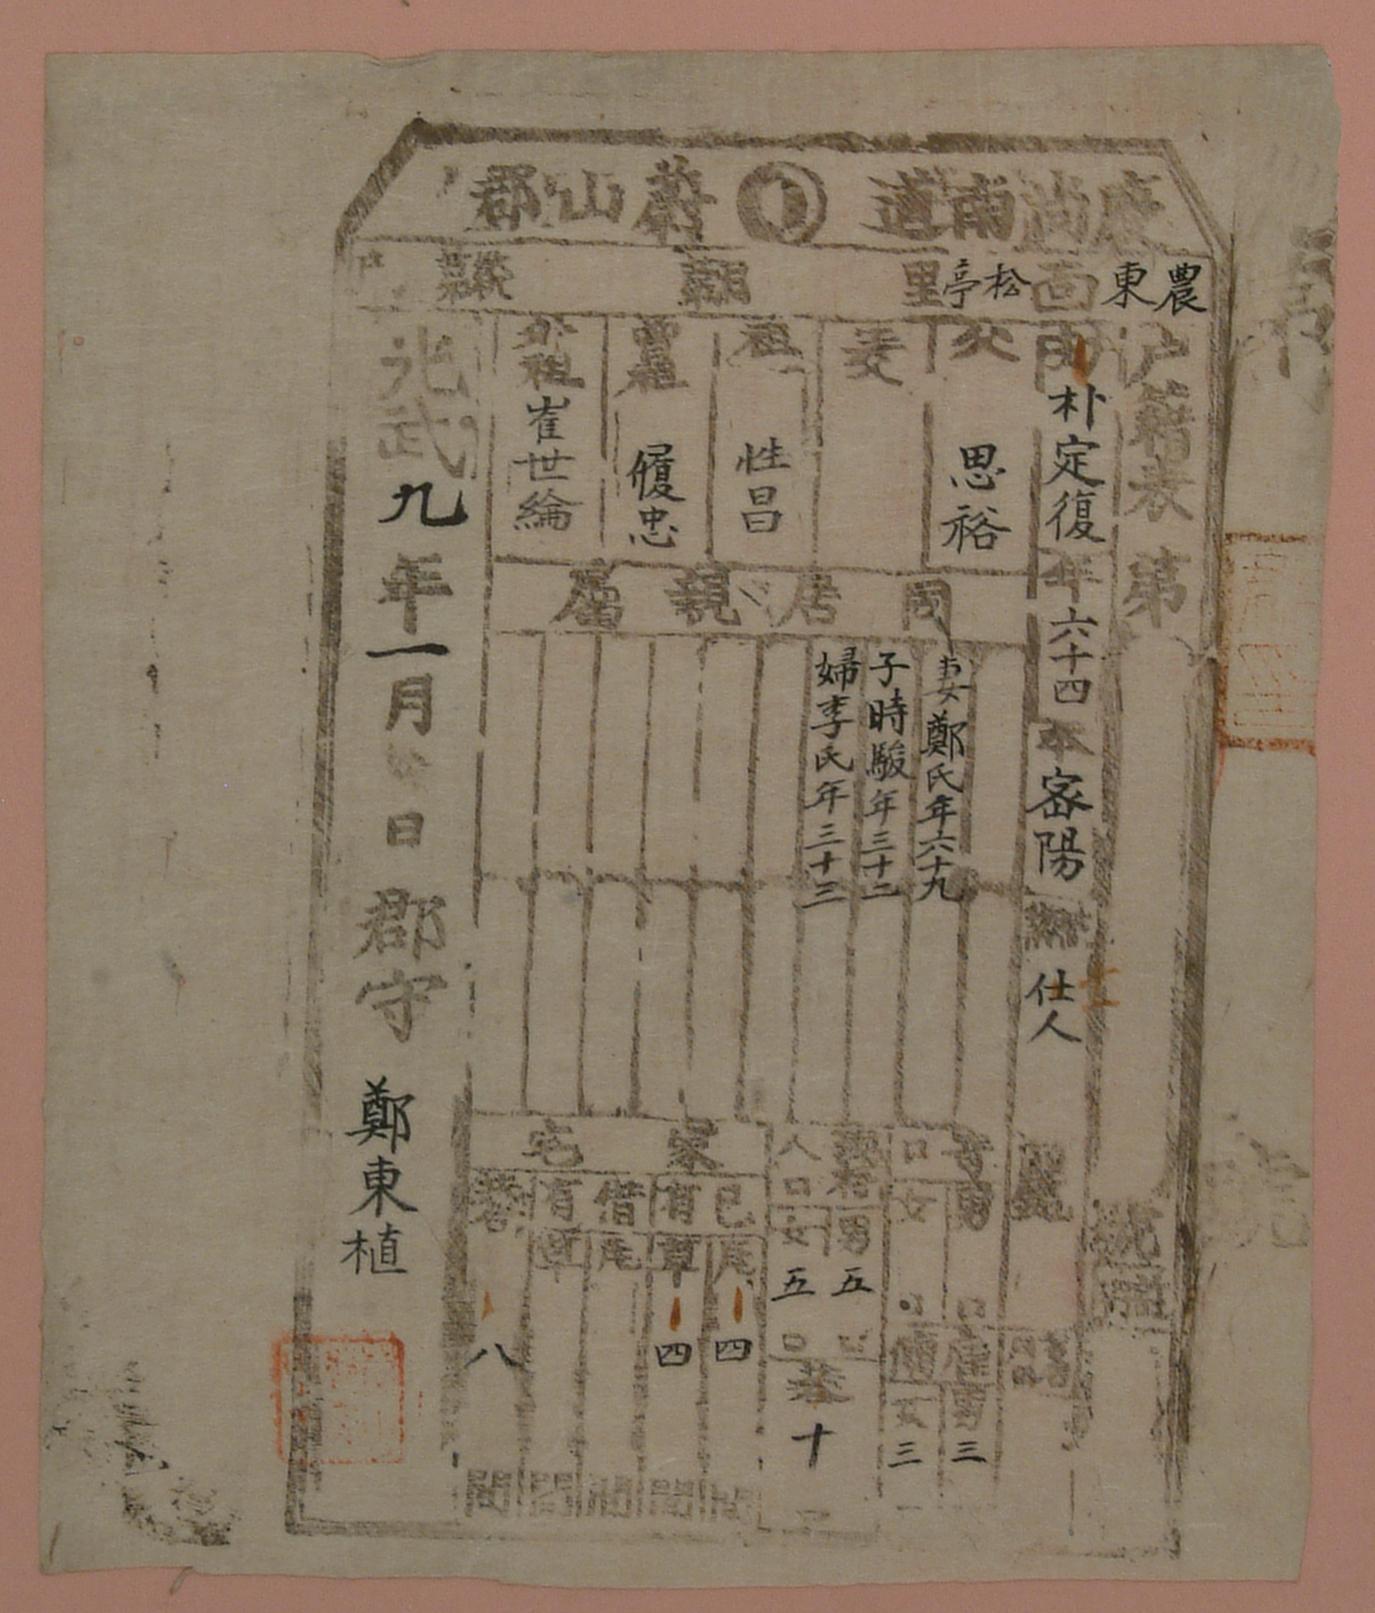 慶尚南道 蔚山郡
農東面松亭里
戶籍表 第
朴定復 年六十四 本密陽 仕人
父 思裕
祖 性昌
曾祖 履忠
外祖 崔世綸
同居親屬
妻鄭氏年六十九
子時駿年三十二
婦李氏年三十三
寄口 男 口 女 口
雇傭 男三 女三
現存人口 男五口 女五口
共十口
家宅
己有 瓦四間 草四間
借有 瓦 間 草 間
共八間
光武九年一月 日 郡守 鄭東植